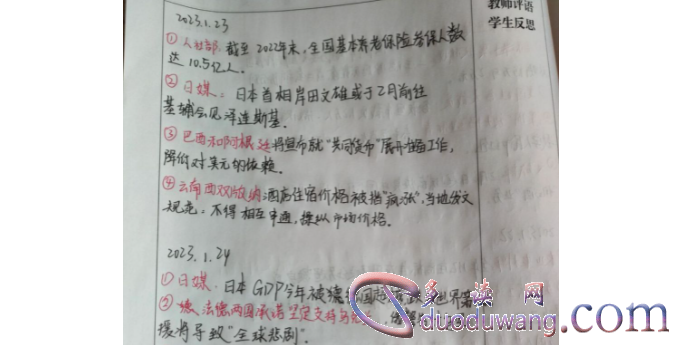 教师评语
学生反思
2023.1.23
①人社部:截至2022年末,全国基本养老保险参保人数
达10.5亿人。
②日媒:日本首相岸田文雄或于2月前往
基辅会见泽连斯基。
③巴西和阿根廷将宣布就"共同货币"展开准备工作,
降低对美元的依赖。
④云南西双版纳:酒店住宿价格被指"疯涨",当地发文
规范:不得相互串通,操纵市场价格。
2023.1.24
①日媒:日本GDP今年被德国
②法德两国承诺坚定支持乌
援将导致"全球悲剧"。
多读网
duoduwang.com